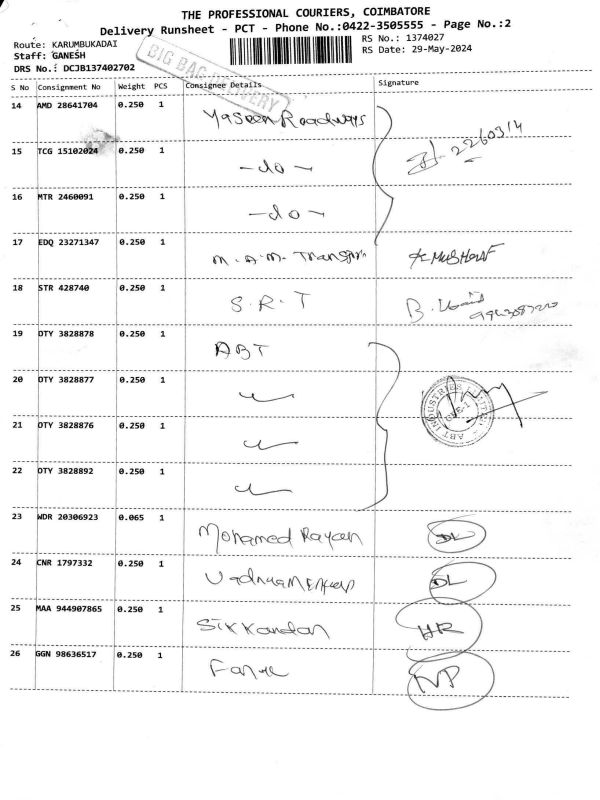 THE PROFESSIONAL COURIERS, COIMBATORE
Delivery Runsheet - PCT - Phone No.:0422-3505555 - Page No.:2
Route: KARUMBUKADAI
RS No.: 1374027
Staff: GANESH
RS Date: 29-May-2024
DRS No.: DCJB137402702
BIG BAG DELIVERY
S No Consignment No Weight PCS Consignee Details Signature
14 AMD 28641704 0.250 1 Yaseen Roadways
15 TCG 15102024 0.250 1 -do-
2260314
16 MTR 2460091 0.250 1 -do-
17 EDQ 23271347 0.250 1 M.A.M. Transport
18 STR 428740 0.250 1 S.R.T B.
19 OTY 3828878 0.250 1 ABT
20 OTY 3828877 0.250 1
ABT INDUSTRIES LIMITED
21 OTY 3828876 0.250 1
22 OTY 3828892 0.250 1
23 WDR 20306923 0.065 1 Mohamed Rayeen DL
24 CNR 1797332 0.250 1 DL
25 MAA 944907865 0.250 1 Sikkandan HR
26 GGN 98636517 0.250 1 NP